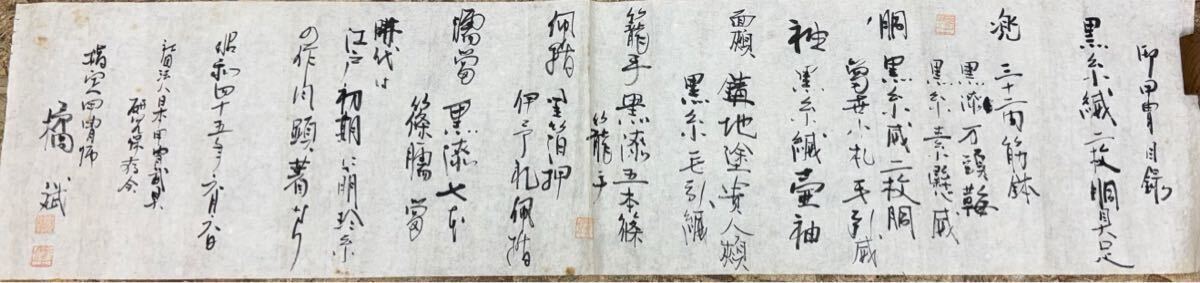 御甲冑目録
黒糸縅二枚胴具足
兜 三十二間筋鉢
黒漆万頭鞠
黒糸素懸威
胴 黒糸威二枚胴
当世小札毛引威
袖 黒糸縅壷袖
面頬 錆地塗 美人頬
黒糸毛引縅
籠手 黒漆五本篠
籠手
佩楯 黒箔押
伊予札佩楯
臑当 黒漆七本
篠臑当
時代は
江戸初期に明珍系
の作内顕著なり
昭和四十五年六月六日
社団法人日本甲冑武具
研究保存会
指定甲冑師
橘 斌